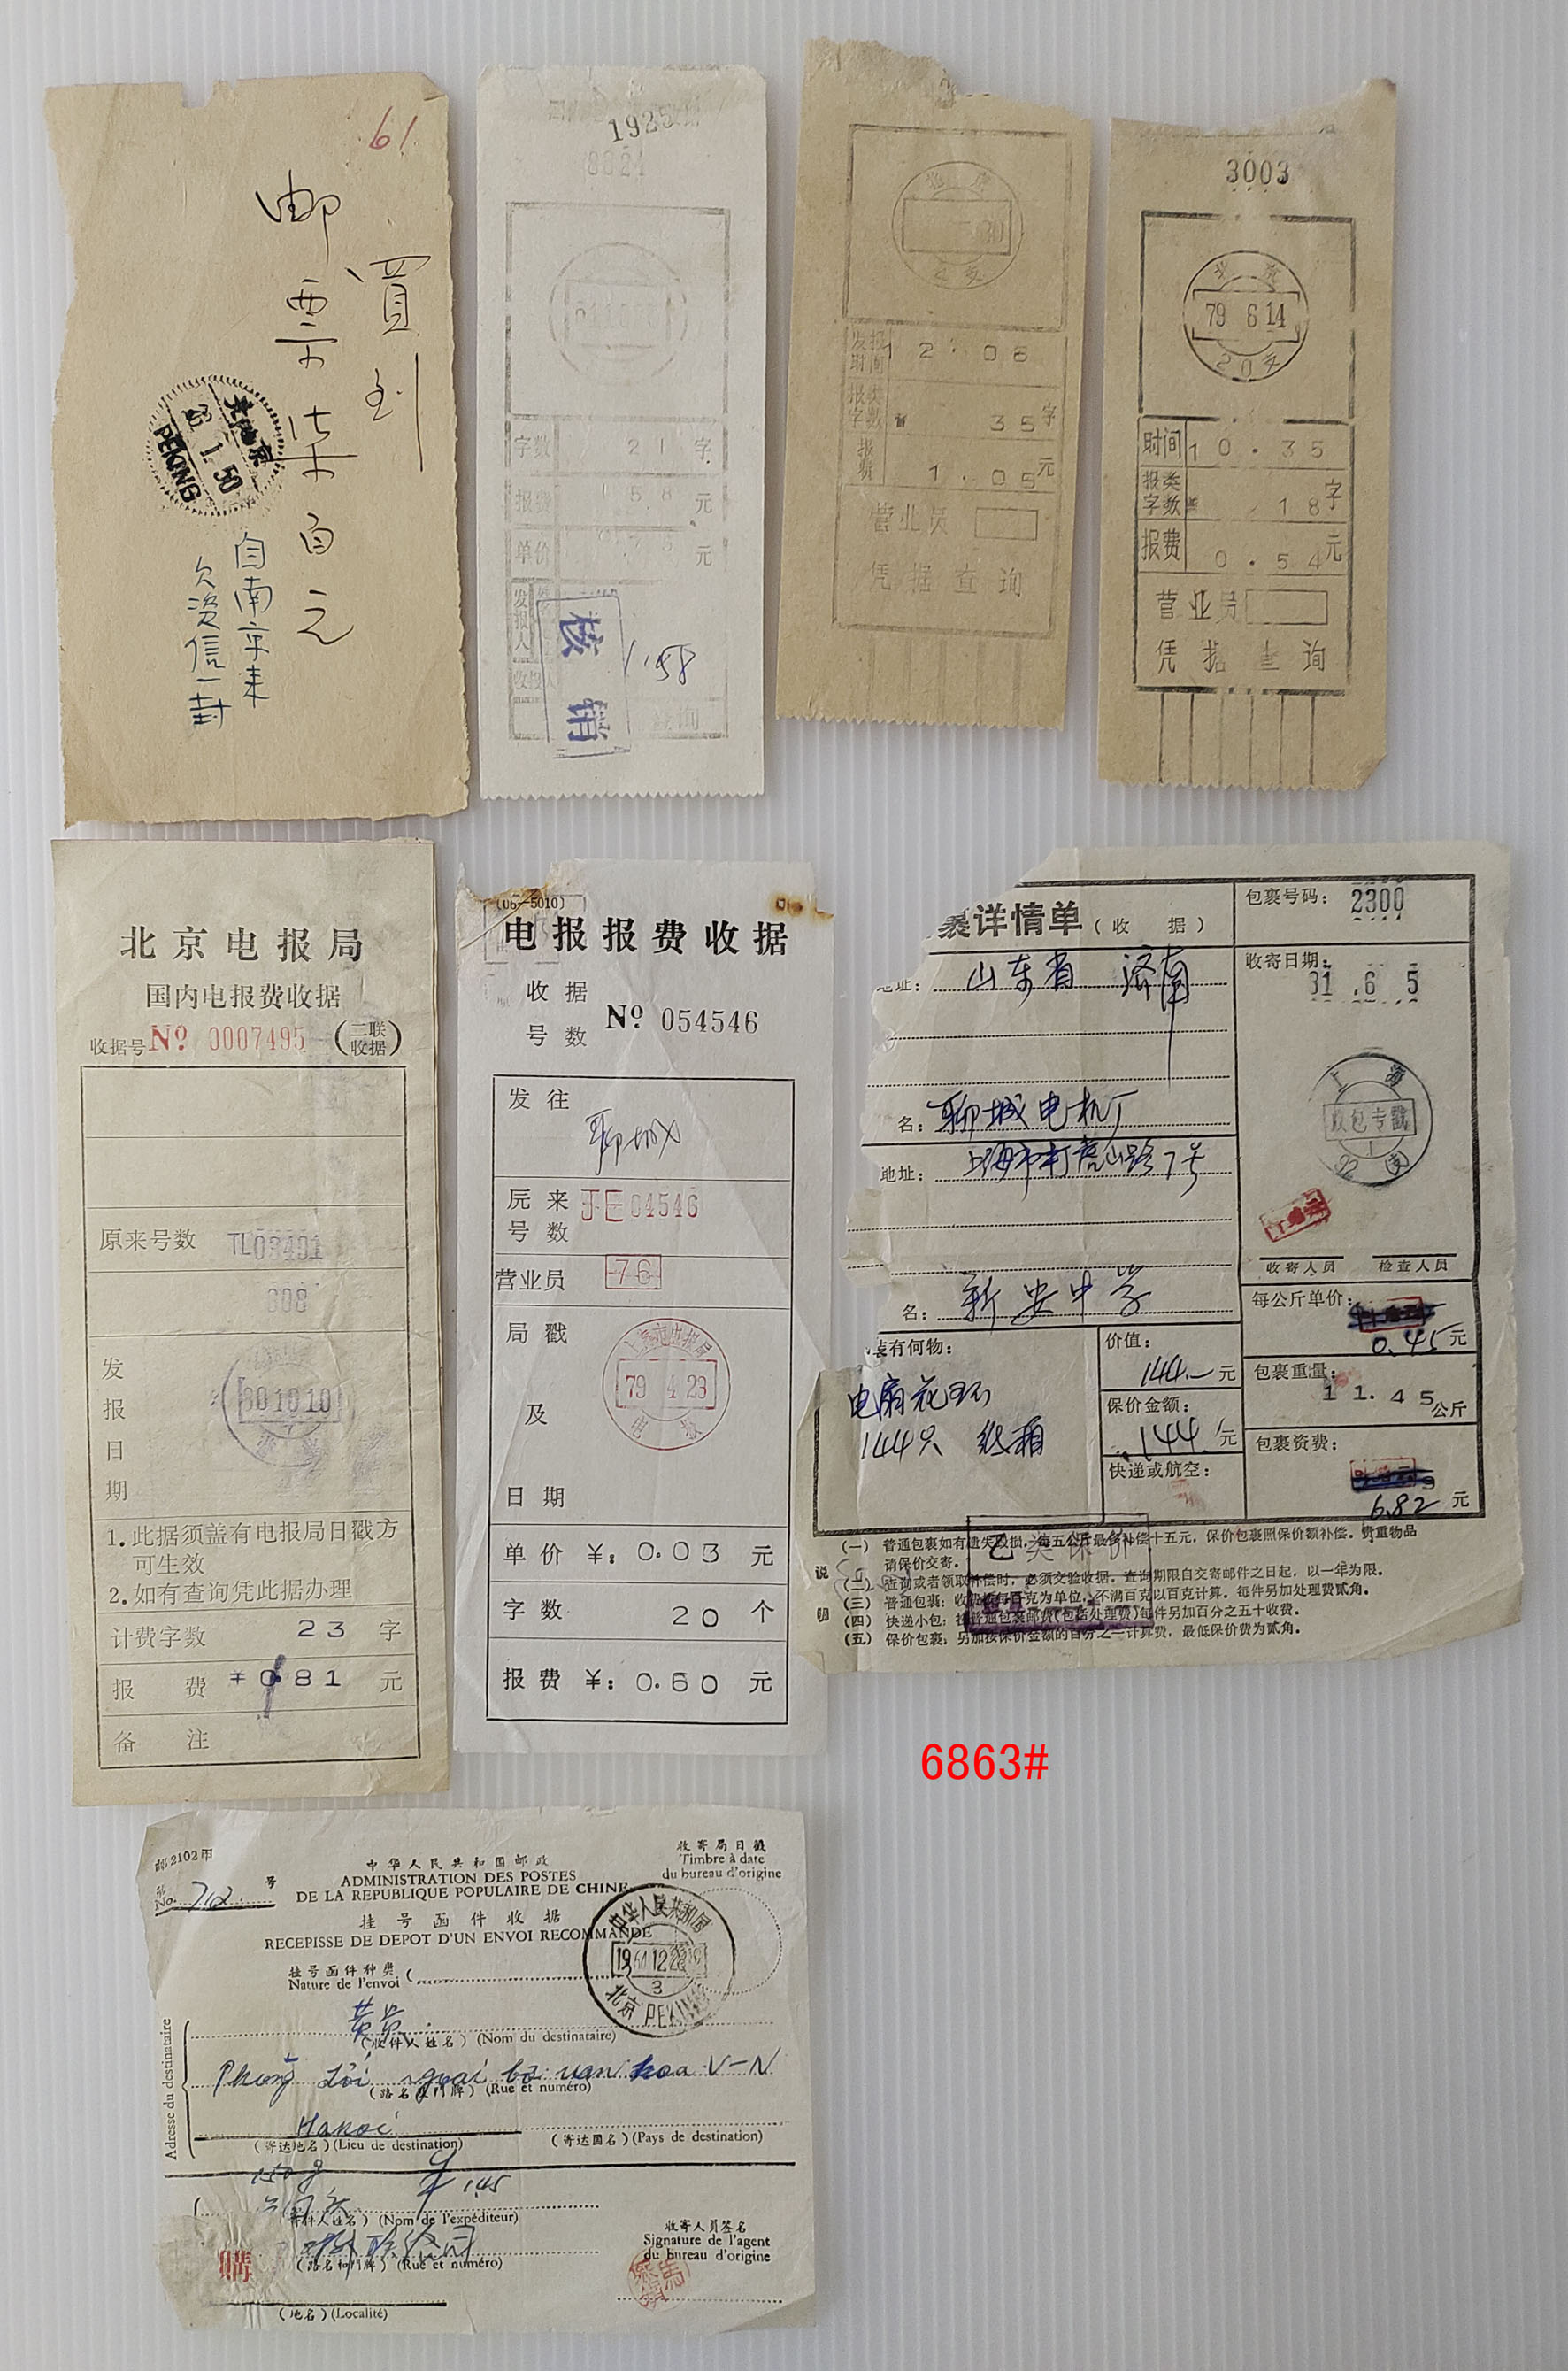 61
買到
邮票柒百元
自南京来
欠资信一封
北京
23 1 50
PEKING
1925
8621
字数 21 字
报费 1.58 元
单价 元
发报人
核销
1.58
北京
发报时间 12.06
报类字数 35字
报费 1.05元
营业员
凭据查询
3003
北京
79 6 14
20支
时间 10.35
报类字数 18字
报费 0.54元
营业员
凭据查询
北京电报局
国内电报费收据
收据号 No 0007495 (二联收据)
原来号数 TL03491
308
发报日期
80 10 10
1.此据须盖有电报局日戳方
可生效
2.如有查询凭此据办理
计费字数 23 字
报费 ¥0.81 元
备注
(06—5010)
电报报费收据
收据号数 No 054546
发往
聊城
原来号数 JE04546
营业员 76
局戳及日期
上海市电报局
79 4 29
单价 ¥: 0.03 元
字数 20 个
报费 ¥: 0.60 元
裹详情单(收 据)
包裹号码: 2300
地址: 山东省 济南
收寄日期: 81.6 5
名: 聊城电机厂
地址: 上海市打虎山路7号
上海
名: 新安中学
收寄人员 检查人员
每公斤单价:
0.45元
装有何物:
价值:
144.—元
包裹重量:
11.45公斤
电扇花环
144只 纸箱
保价金额:
144.元
快递或航空:
包裹资费:
6.82元
乙类保价
说明
(一) 普通包裹如有遗失毁损,每五公斤最多补偿十五元,保价包裹照保价额补偿。贵重物品
请保价交寄。
(二) 查询或者领取补偿时,必须交验收据。查询期限自交寄邮件之日起,以一年为限。
(三) 普通包裹:收费按每百克为单位,不满百克以百克计算。每件另加处理费贰角。
(四) 快递小包:按普通包裹邮费(包括处理费)每件另加百分之五十收费。
(五) 保价包裹:另加按保价金额的百分之一计算费,最低保价费为贰角。
6863#
邮2102甲
第 No. 712 号
中华人民共和国邮政
ADMINISTRATION DES POSTES
DE LA REPUBLIQUE POPULAIRE DE CHINE
收寄局日戳
Timbre à date
du bureau d'origine
挂号函件收据
RECEPISSE DE DEPOT D'UN ENVOI RECOMMANDE
挂号函件种类
Nature de l'envoi
中华人民共和国
12
3
北京 PEKING
Adresse du destinataire
(收件人姓名) (Nom du destinataire)
V-N
(路名和门牌) (Rue et numéro)
Hanoi
(寄达地名) (Lieu de destination) (寄达国名) (Pays de destination)
150g ¥ 1.45
(寄件人姓名) (Nom de l'expéditeur)
(路名和门牌) (Rue et numéro)
(地名) (Localité)
收寄人员签名
Signature de l'agent
du bureau d'origine
購